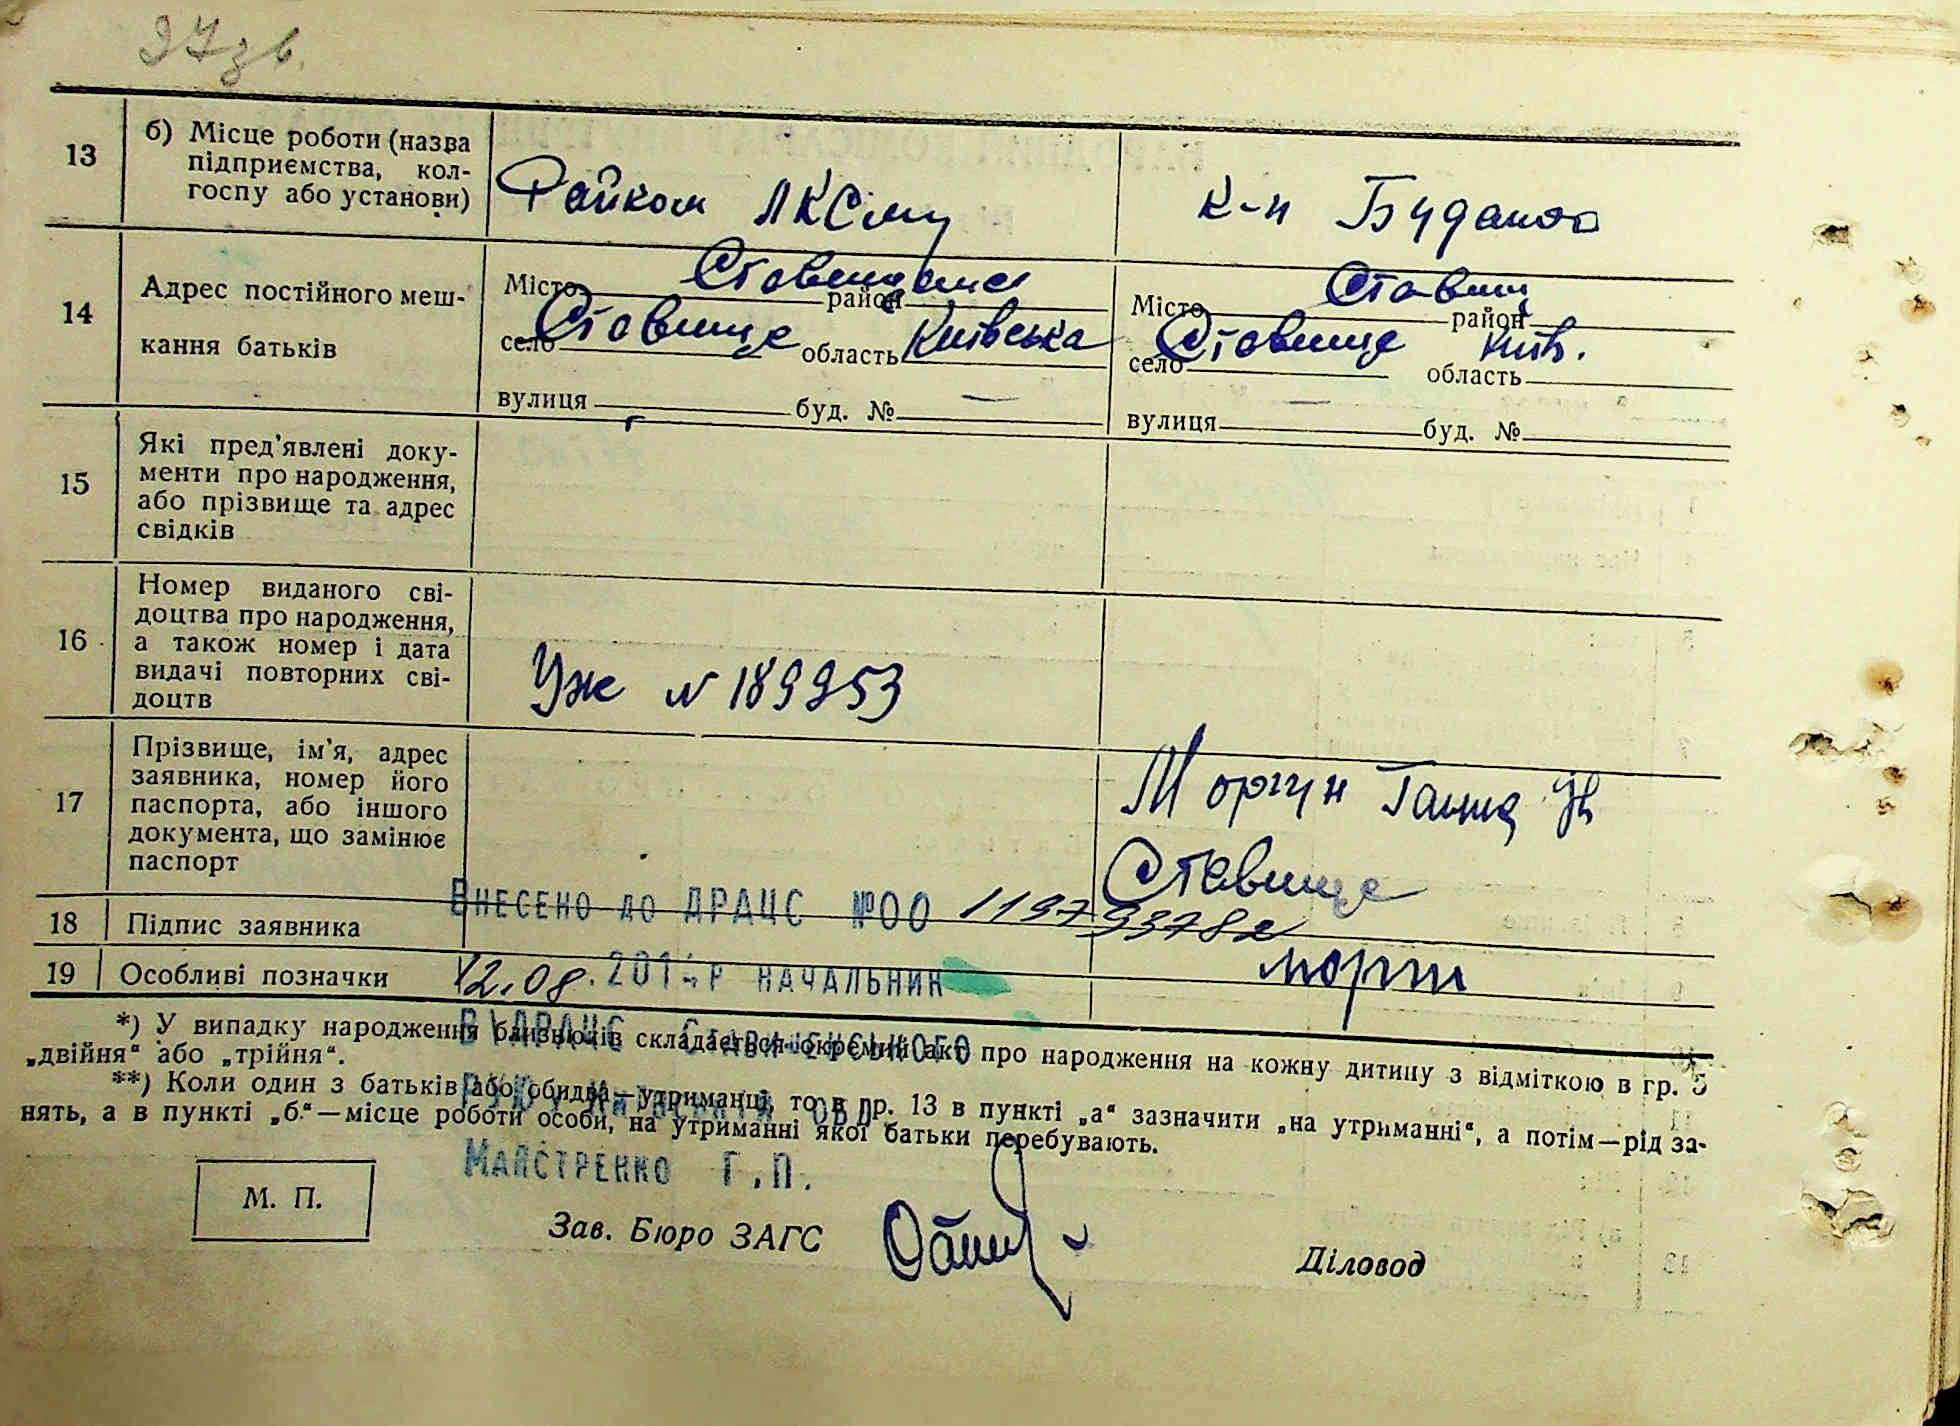 97 зв.
13
б) Місце роботи (назва
підприємства, кол-
госпу або установи)
Райком ЛКСМУ
к-п
14
Адрес постійного меш-
кання батьків
Місто район
село Ставище область Київська
вулиця — буд. № —
Місто Ставищ район
село Ставище область Київ.
вулиця — буд. №
15
Які пред'явлені доку-
менти про народження,
або прізвище та адрес
свідків
16
Номер виданого сві-
доцтва про народження,
а також номер і дата
видачі повторних сві-
доцтв
УЖ № 189953
17
Прізвище, ім'я, адрес
заявника, номер його
паспорта, або іншого
документа, що замінює
паспорт
Моргун Ганна
Ставище
18
Підпис заявника
19
Особливі позначки
Внесено до ДРАЦС №00
12.08.201 р начальник
ВДРАЦС Ставищенського
обл.
Майстренко Г.П.
*) У випадку народження близнюків складається окремий акт про народження на кожну дитину з відміткою в гр. 5
„двійня“ або „трійня“.
**) Коли один з батьків або обидва—утриманці, то в гр. 13 в пункті „а“ зазначити „на утриманні“, а потім—рід за-
нять, а в пункті „б“—місце роботи особи, на утриманні якої батьки перебувають.
М. П.
Зав. Бюро ЗАГС
Діловод